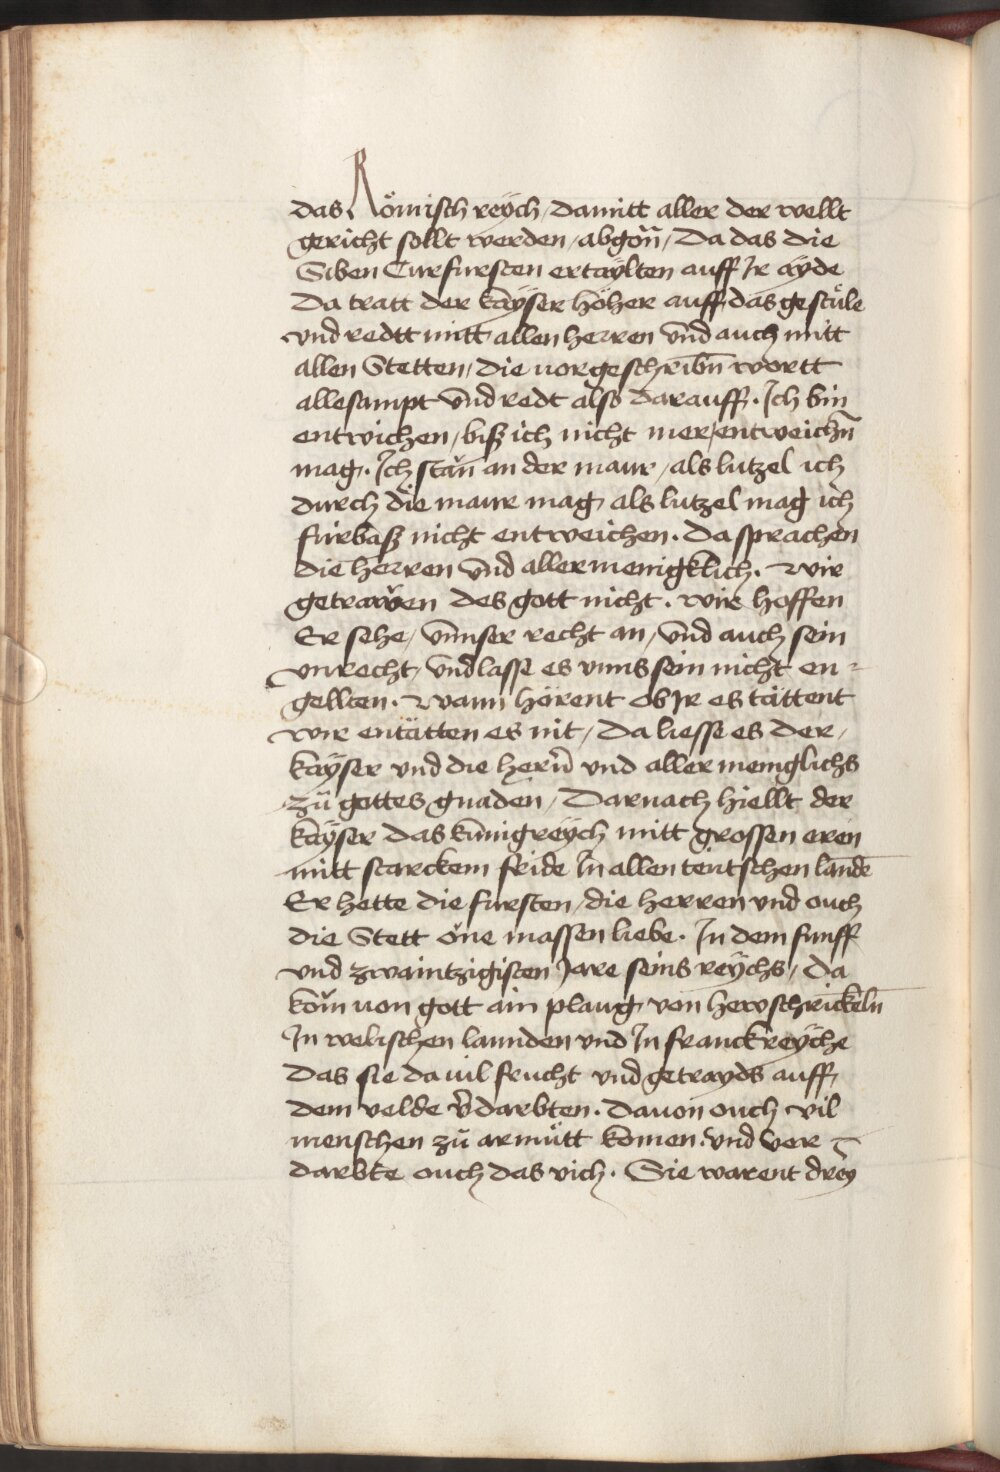 das Römisch reÿch / damitt aller der wellt
gericht sollt werden / abgon̄ / Da das die
Siben Curfursten ertaÿlten auff Ir aÿde
Da tratt der kaÿser höher auff das gestüle
vnd redtt mitt allen herren vnd auch mitt
allen Stetten / die uorgeschribn̄ wortt
allesampt vnd redt also darauff . Ich bin
entwichen / biß ich nicht mer / entweichn̄
mag . Ich stăn an der maur / als lutzel ich
durch die maur mag als lutzel mag ich
fürbaß nicht entweichen . Da sprachen
die herren vnd allermenigklich . wir
getrawen des gott nicht . wir hoffen
Er sehe / vnnser recht an / vnd auch sein
vnrecht / vnd lasse es vnns sein nicht en=
gellten . wann hörent ob Ir es tättent
wir entätten es nit / Da liesse es der /
kaÿser vnd die hern̄ vnd aller meniglichs
zů gottes gnaden / Darnach hiellt der
kaÿser das kunigreÿch mitt grossen eren
mitt starckem fride In allen teutschen lande
Er hette die fursten / die herren vnd ouch
die Stett öne massen liebe . In dem funff
vnd zwaintzigisten Jare seins reÿchs / da
kom̆ von gott ain plaug von hewschrickeln̄
In welischen lannden vnd In franckreÿche
Das sie da uil frucht vnd getrayds auff
dem velde v̄darbten . dauon ouch vil
menschen zů armůtt komen . vnd ver =
darbte ouch das vich . Sie warent dreÿ